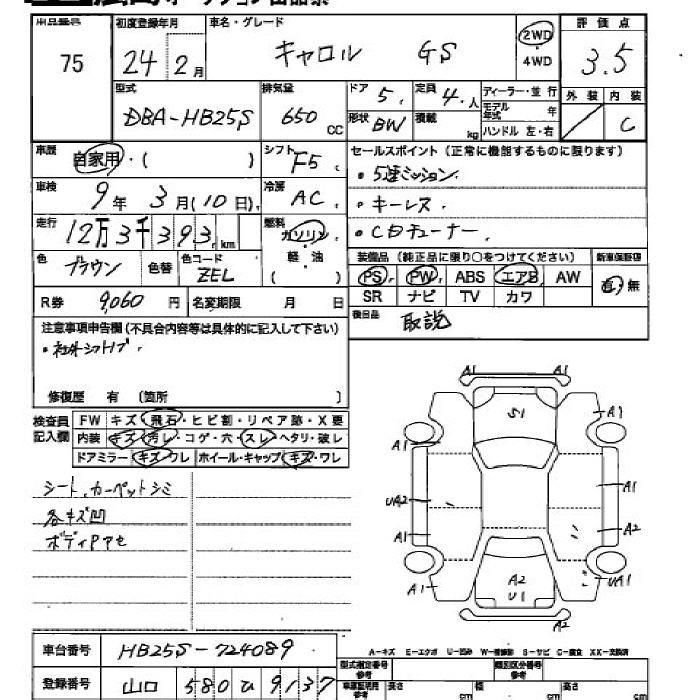 出品番号 初度登録年月 車名・グレード 評価点
75 24 2月 キャロル GS 2WD・4WD 3.5
型式 排気量 ドア 5. 定員 4.人 ディーラー・並行 外装 内装
DBA-HB25S 650cc 形状 BW 積載 kg モデル年式 年
ハンドル 左・右 C
車歴 自家用・( ) シフト F5 セールスポイント(正常に機能するものに限ります)
・5速ミッション.
車検 9年 3月(10日) 冷房 AC ・キーレス.
走行 12万3千393km 燃料 ガソリン・軽・油( ) ・CDチューナー.
色 ブラウン 色替 色コード ZEL 装備品(純正品に限り○をつけてください) 新車保証書
PS PW ABS エアB AW 有・無
R券 9,060円 名変期限 月 日 SR ナビ TV カワ
注意事項申告欄(不具合内容等は具体的に記入して下さい) 後日品 取説
・社外シフトノブ.
修復歴 有 (箇所 )
検査員記入欄 FW キズ・飛石・ヒビ割・リペア跡・X要
内装 キズ・汚レ・コゲ・穴・スレ・ヘタリ・破レ
ドアミラー キズ・ワレ ホイール・キャップ キズ・ワレ
シート.カーペットシミ
各キズ凹
ボディPアセ
A1
S1 A1
A1
A1
UA2
A2
A1
A2 U1 UA1
A1
A2
車台番号 HB25S-724089
A-キズ E-エクボ U-凹み W-補修跡 S-サビ C-腐食 XX-交換済
登録番号 山口 580 ひ 9137
型式指定番号 参考 類別区分番号 参考
長さ cm 幅 cm 高さ cm